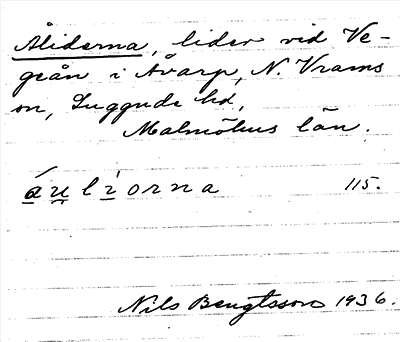 Åliderna, lider vid Ve-
geån i Åvarp, N. Vrams
sn, Luggude hd,
Malmöhus län.
áu̯lìorna 115.
Nils Bengtsson 1936.